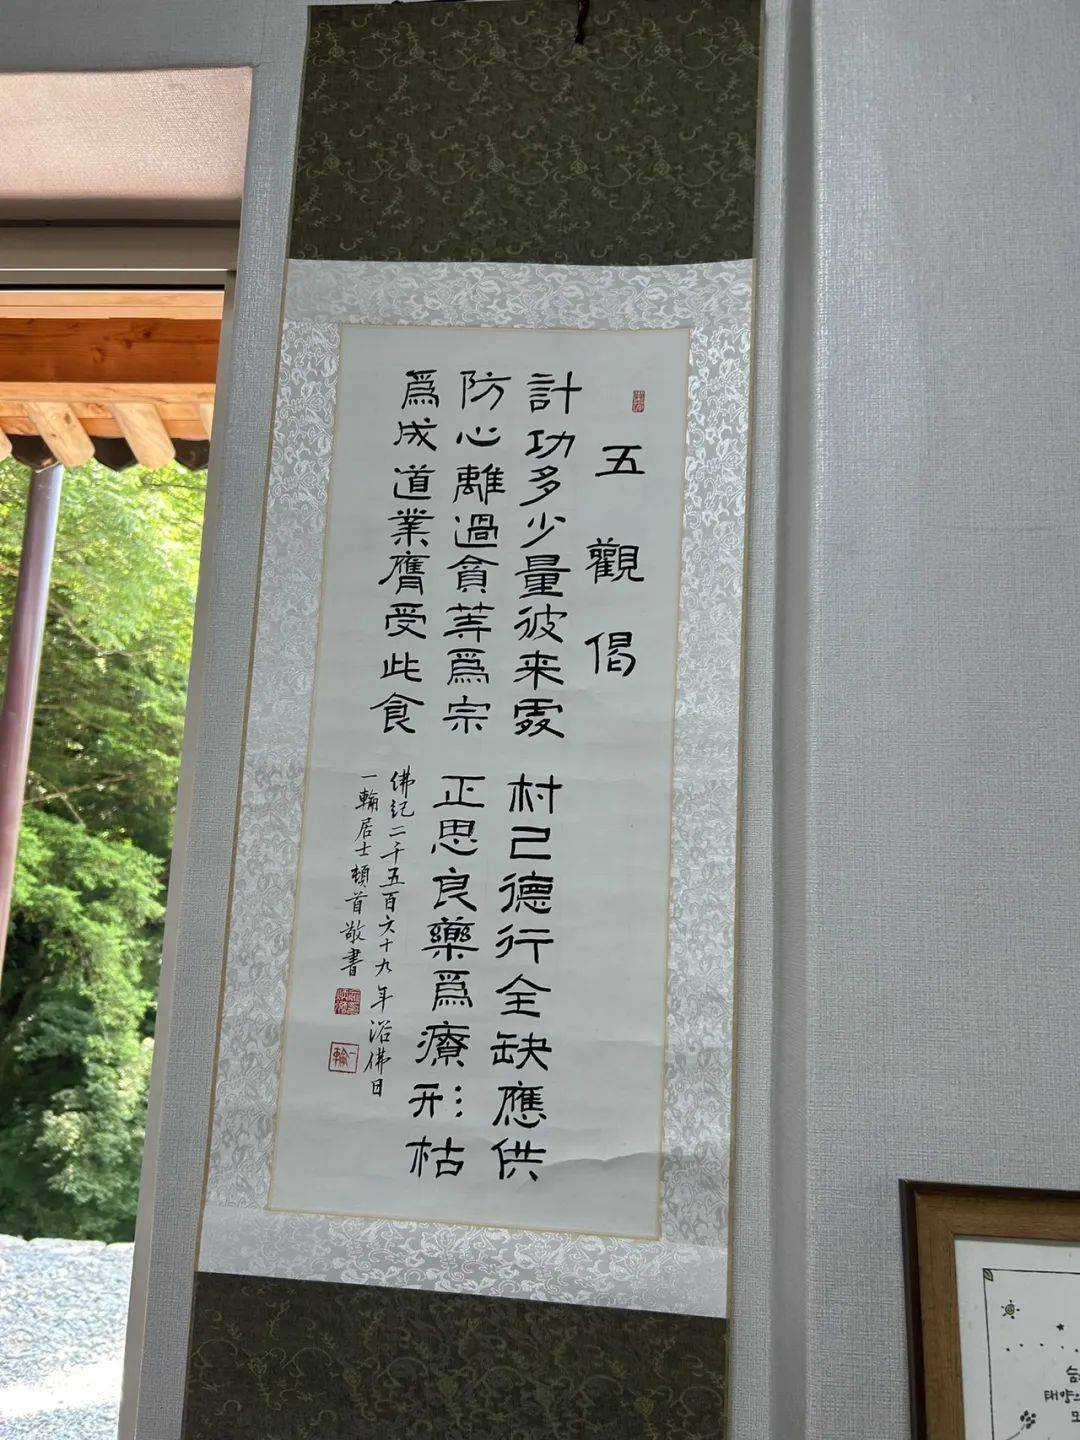 五觀偈
計功多少量彼来處 村己德行全缺應供
防心離過貪等爲宗 正思良藥爲療形枯
爲成道業膺受此食
佛紀二千五百六十九年浴佛日
一輪居士頓首敬書
一輪
태양